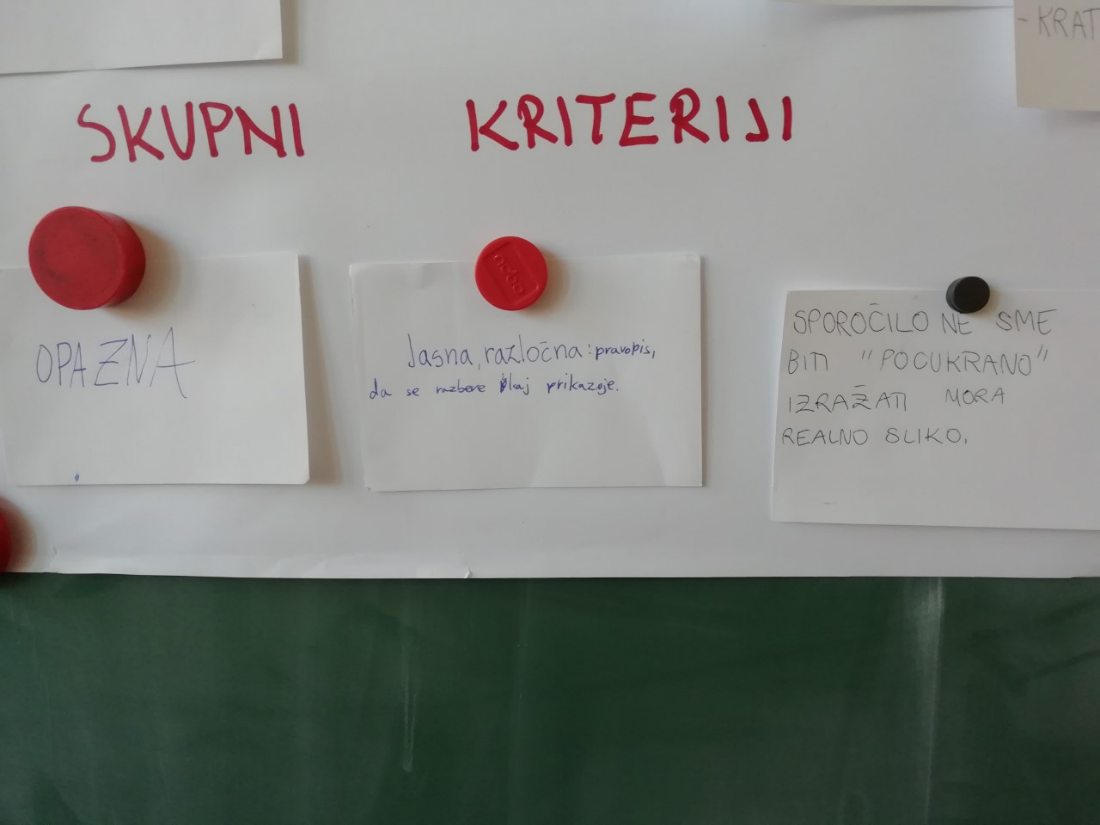 - KRAT
SKUPNI KRITERIJI
OPAZNA
Jasna, razločna: pravopis,
da se razbere kaj prikazuje.
SPOROČILO NE SME
BITI "POCUKRANO"
IZRAŽATI MORA
REALNO SLIKO.